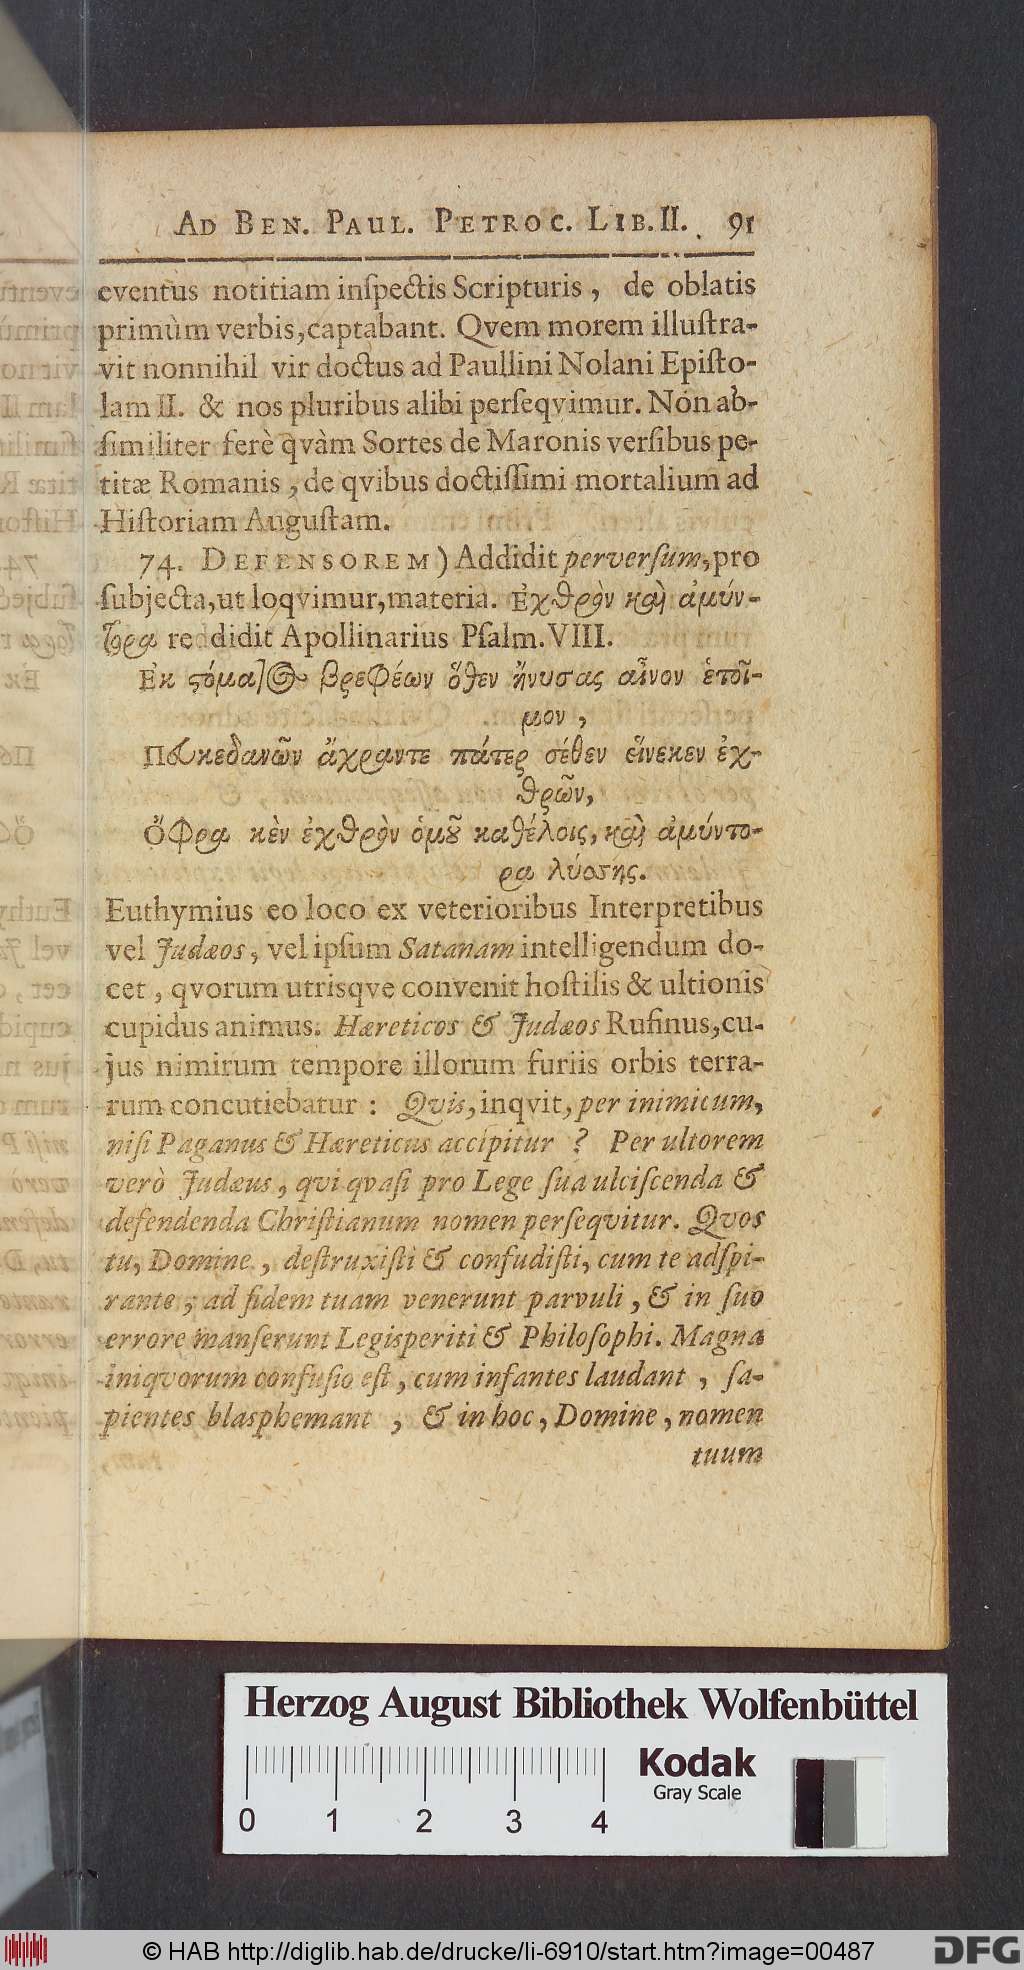 AD BEN. PAUL. PETROC. LIB. II. 91
eventus notitiam inſpectis Scripturis, de oblatis
primùm verbis, captabant. Qvem morem illuſtra-
vit nonnihil vir doctus ad Paullini Nolani Epiſto-
lam II. & nos pluribus alibi perſeqvimur. Non ab-
ſimiliter ferè qvàm Sortes de Maronis verſibus pe-
titæ Romanis, de qvibus doctiſſimi mortalium ad
Hiſtoriam Auguſtam.
74. DEFENSOREM) Addidit perverſum, pro
ſubjecta, ut loqvimur, materia. Ἐχθρὸν καὶ ἀμύν-
τορα reddidit Apollinarius Pſalm. VIII.
Ἐκ ςόματος βρεφέων ὅθεν ἤνυσας αἶνον ἑτοῖ-
μον,
Πευκεδανῶν ἄχραντε πάτερ σέθεν εἵνεκεν ἐχ-
θρῶν,
Ὄφρα κὲν ἐχθρὸν ὁμοῦ καθέλοις, καὶ ἀμύντο-
ρα λύσσης.
Euthymius eo loco ex veterioribus Interpretibus
vel Judæos, vel ipſum Satanam intelligendum do-
cet, qvorum utrisqve convenit hoſtilis & ultionis
cupidus animus. Hæreticos & Judæos Rufinus, cu-
jus nimirum tempore illorum furiis orbis terra-
rum concutiebatur: Qvis, inqvit, per inimicum,
niſi Paganus & Hæreticus accipitur? Per ultorem
verò Judæus, qvi qvaſi pro Lege ſua ulciſcenda &
defendenda Chriſtianum nomen perſeqvitur. Qvos
tu, Domine, deſtruxiſti & confudiſti, cum te adſpi-
rante, ad fidem tuam venerunt parvuli, & in ſuo
errore manſerunt Legisperiti & Philoſophi. Magna
iniqvorum confuſio eſt, cum infantes laudant, ſa-
pientes blasphemant, & in hoc, Domine, nomen
tuum
Herzog August Bibliothek Wolfenbüttel
Kodak
Gray Scale
0 1 2 3 4
© HAB http://diglib.hab.de/drucke/li-6910/start.htm?image=00487
DFG